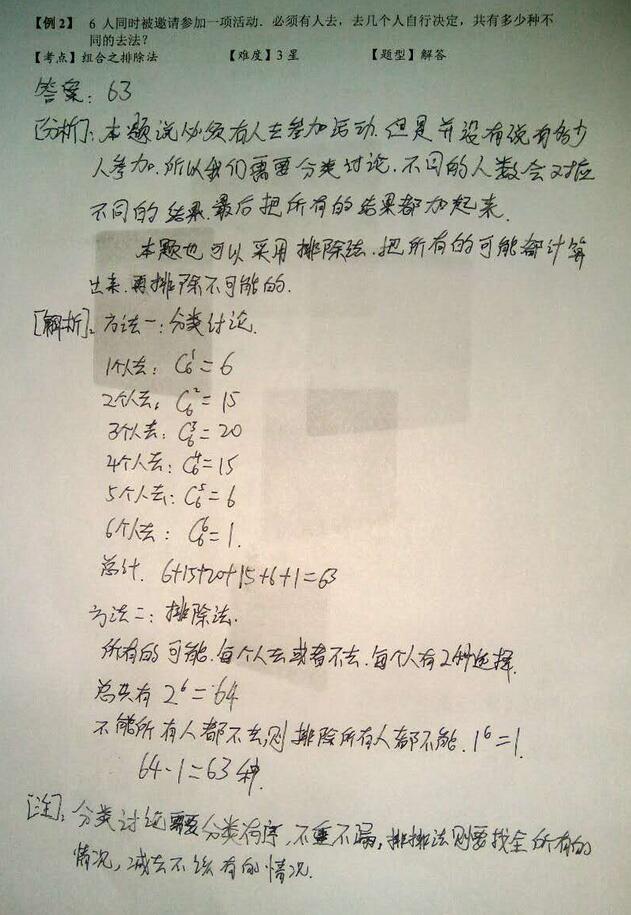 【例2】 6 人同时被邀请参加一项活动．必须有人去，去几个人自行决定，共有多少种不
同的去法？
【考点】组合之排除法 【难度】3 星 【题型】解答
答案：63
[分析]：本题说必须有人去参加活动．但是并没有说有多少
人参加．所以我们需要分类讨论．不同的人数会对应
不同的结果．最后把所有的结果都加起来．
本题也可以采用排除法．把所有的可能都计算
出来．再排除不可能的．
[解析]：方法一：分类讨论．
1个人去：C₆¹=6
2个人去：C₆²=15
3个人去：C₆³=20
4个人去：C₆⁴=15
5个人去：C₆⁵=6
6个人去：C₆⁶=1．
总计．6+15+20+15+6+1=63
方法二：排除法．
所有的可能．每个人去或者不去．每个人有2种选择．
总共有 2⁶=64
不能所有人都不去，则排除所有人都不能．1⁶=1．
64-1=63种．
[注]：分类讨论需要分类有序，不重不漏，排排法则要找全所有的
情况，减去不该有的情况．